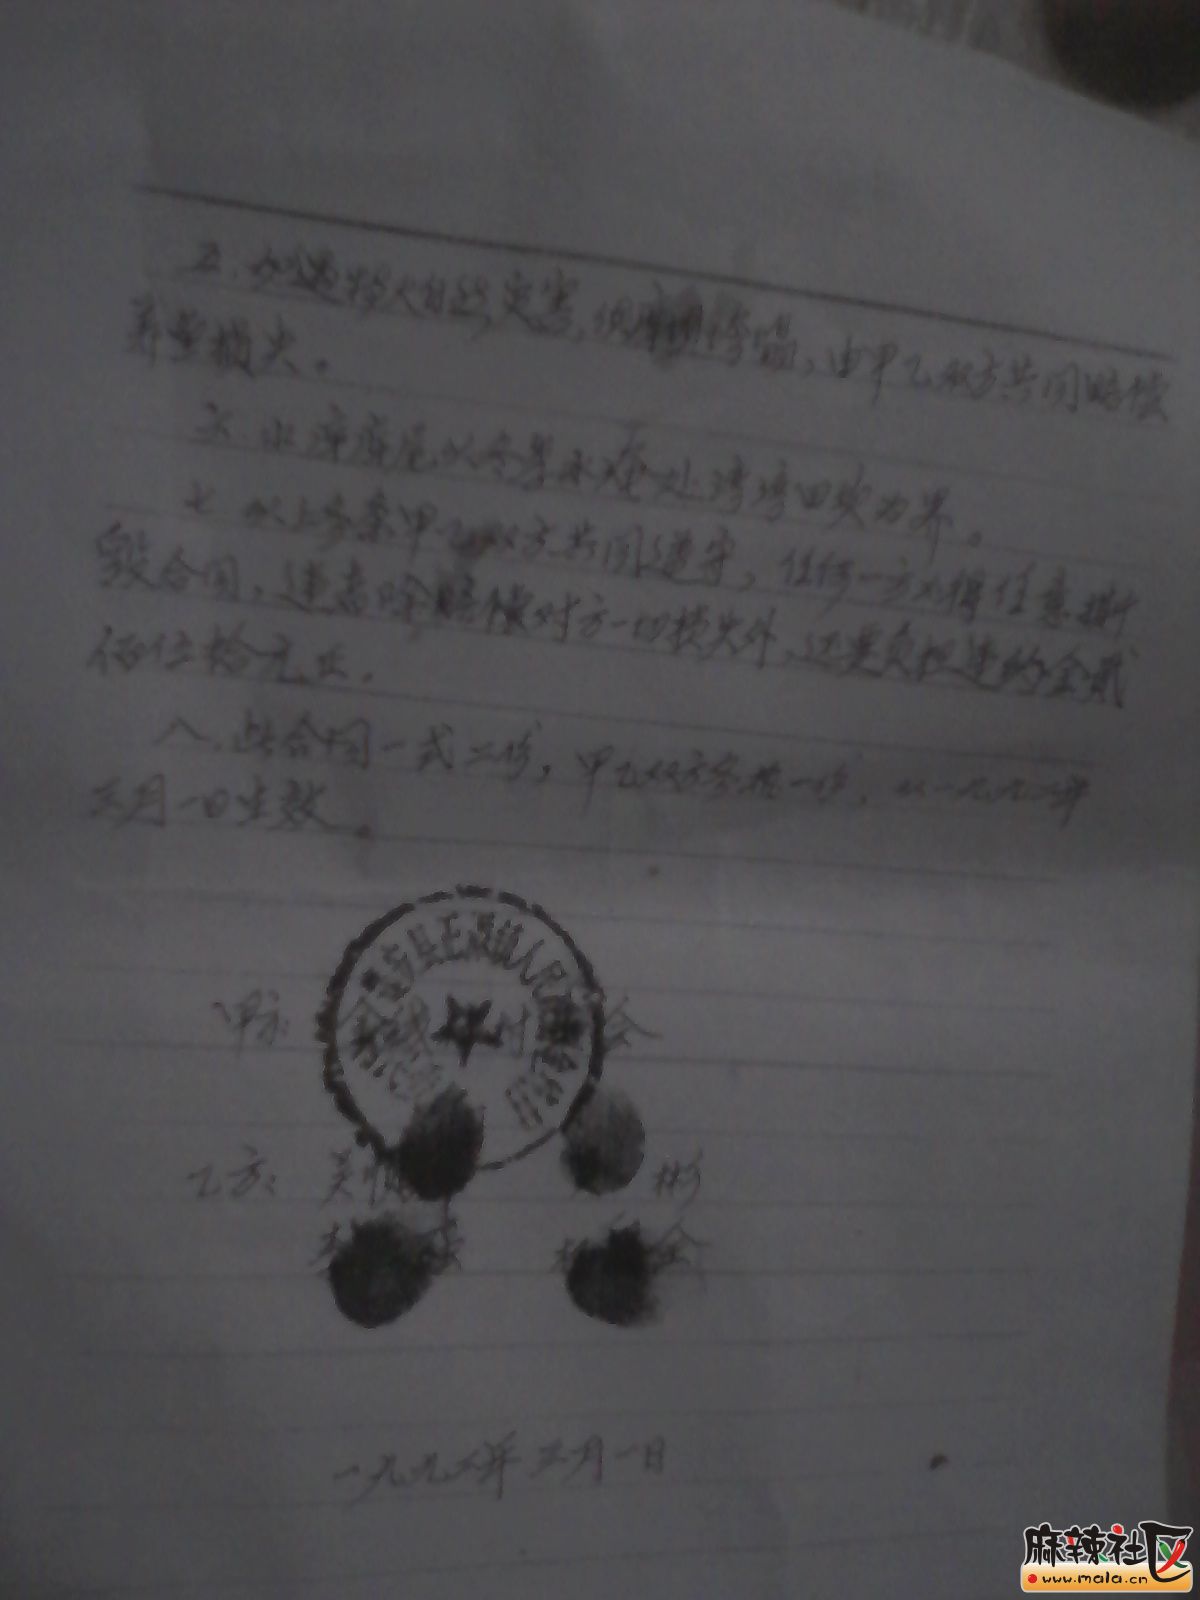 五、如遇特大自然灾害,倒塌,由甲乙双方共同赔偿
养鱼损失。
六、水库库尾以冬旱水淹处湾湾田坎为界。
七、以上各条甲乙双方共同遵守,任何一方不得任意撕
毁合同,违者除赔偿对方一切损失外,还要负担违约金贰
佰伍拾元正。
八、此合同一式二份,甲乙双方各执一份,从一九九二年
三月一日生效。
县正 镇人民
甲方: 村 会
乙方: 吴 彬
会
一九九二年三月一日
麻辣社区
www.mala.cn